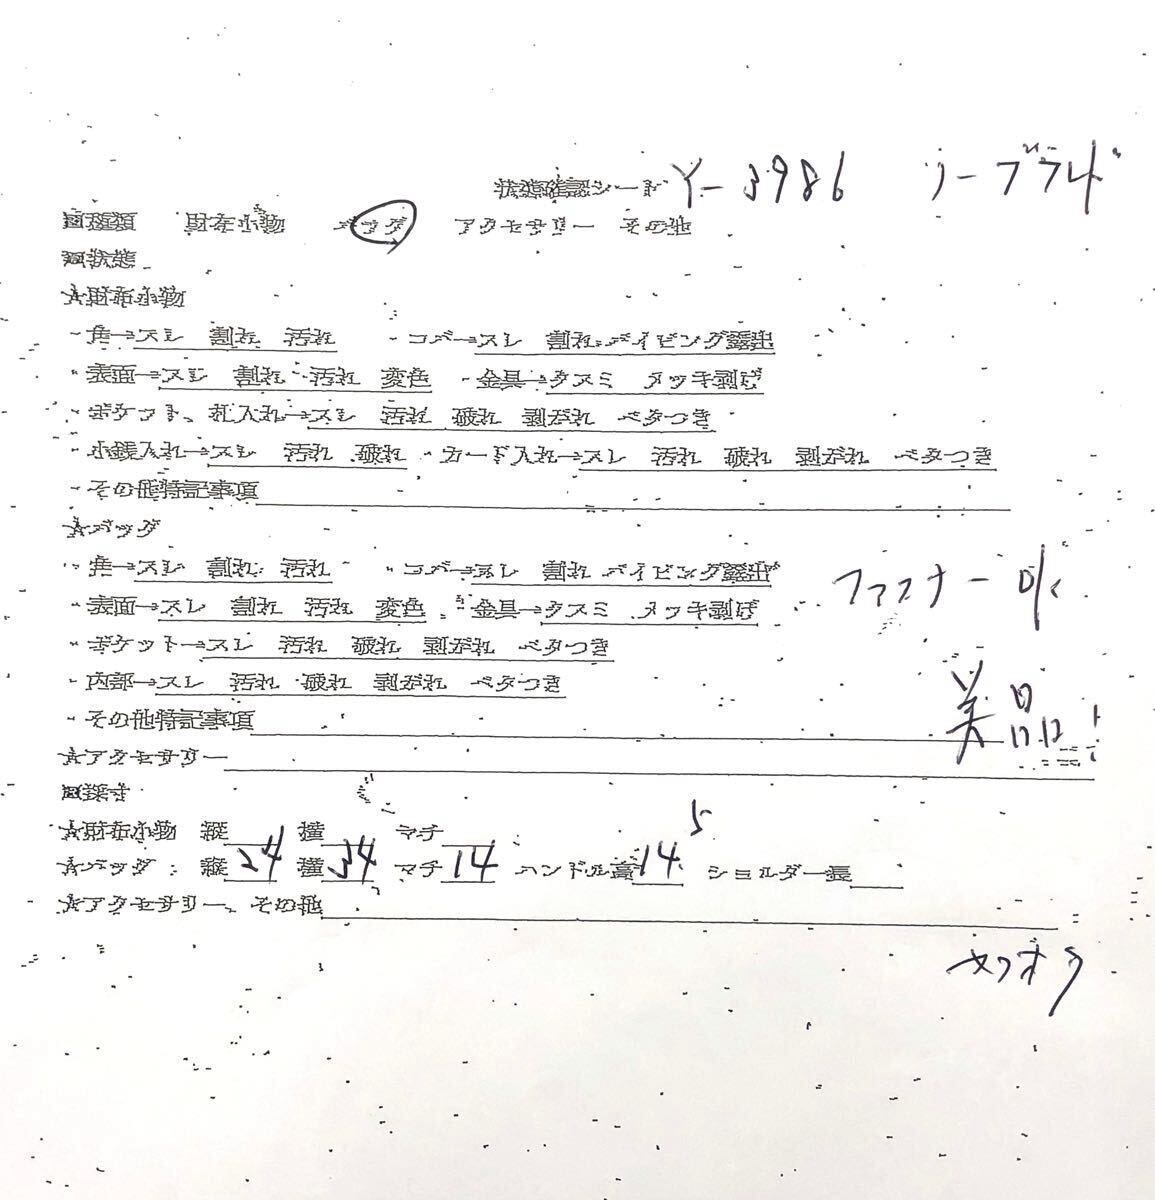 状態確認シート Y-3986 ノーブランド
□種類 財布小物 バッグ アクセサリー その他
□状態
★財布小物
・角→スレ 割れ 汚れ ・コバ→スレ 割れ パイピング露出
・表面→スレ 割れ 汚れ 変色 ・金具→クスミ メッキ剥げ
・ポケット、札入れ→スレ 汚れ 破れ 剥がれ ベタつき
・小銭入れ→スレ 汚れ 破れ ・カード入れ→スレ 汚れ 破れ 剥がれ ベタつき
・その他特記事項
★バッグ
・角→スレ 割れ 汚れ ・コバ→スレ 割れ パイピング露出 ファスナー ok
・表面→スレ 割れ 汚れ 変色 ・金具→クスミ メッキ剥げ
・ポケット→スレ 汚れ 破れ 剥がれ ベタつき
・内部→スレ 汚れ 破れ 剥がれ ベタつき
・その他特記事項 美品
★アクセサリー
□採寸
★財布小物 縦 横 マチ
★バッグ:縦24 横34 マチ14 ハンドル高14 5 ショルダー長
★アクセサリー、その他